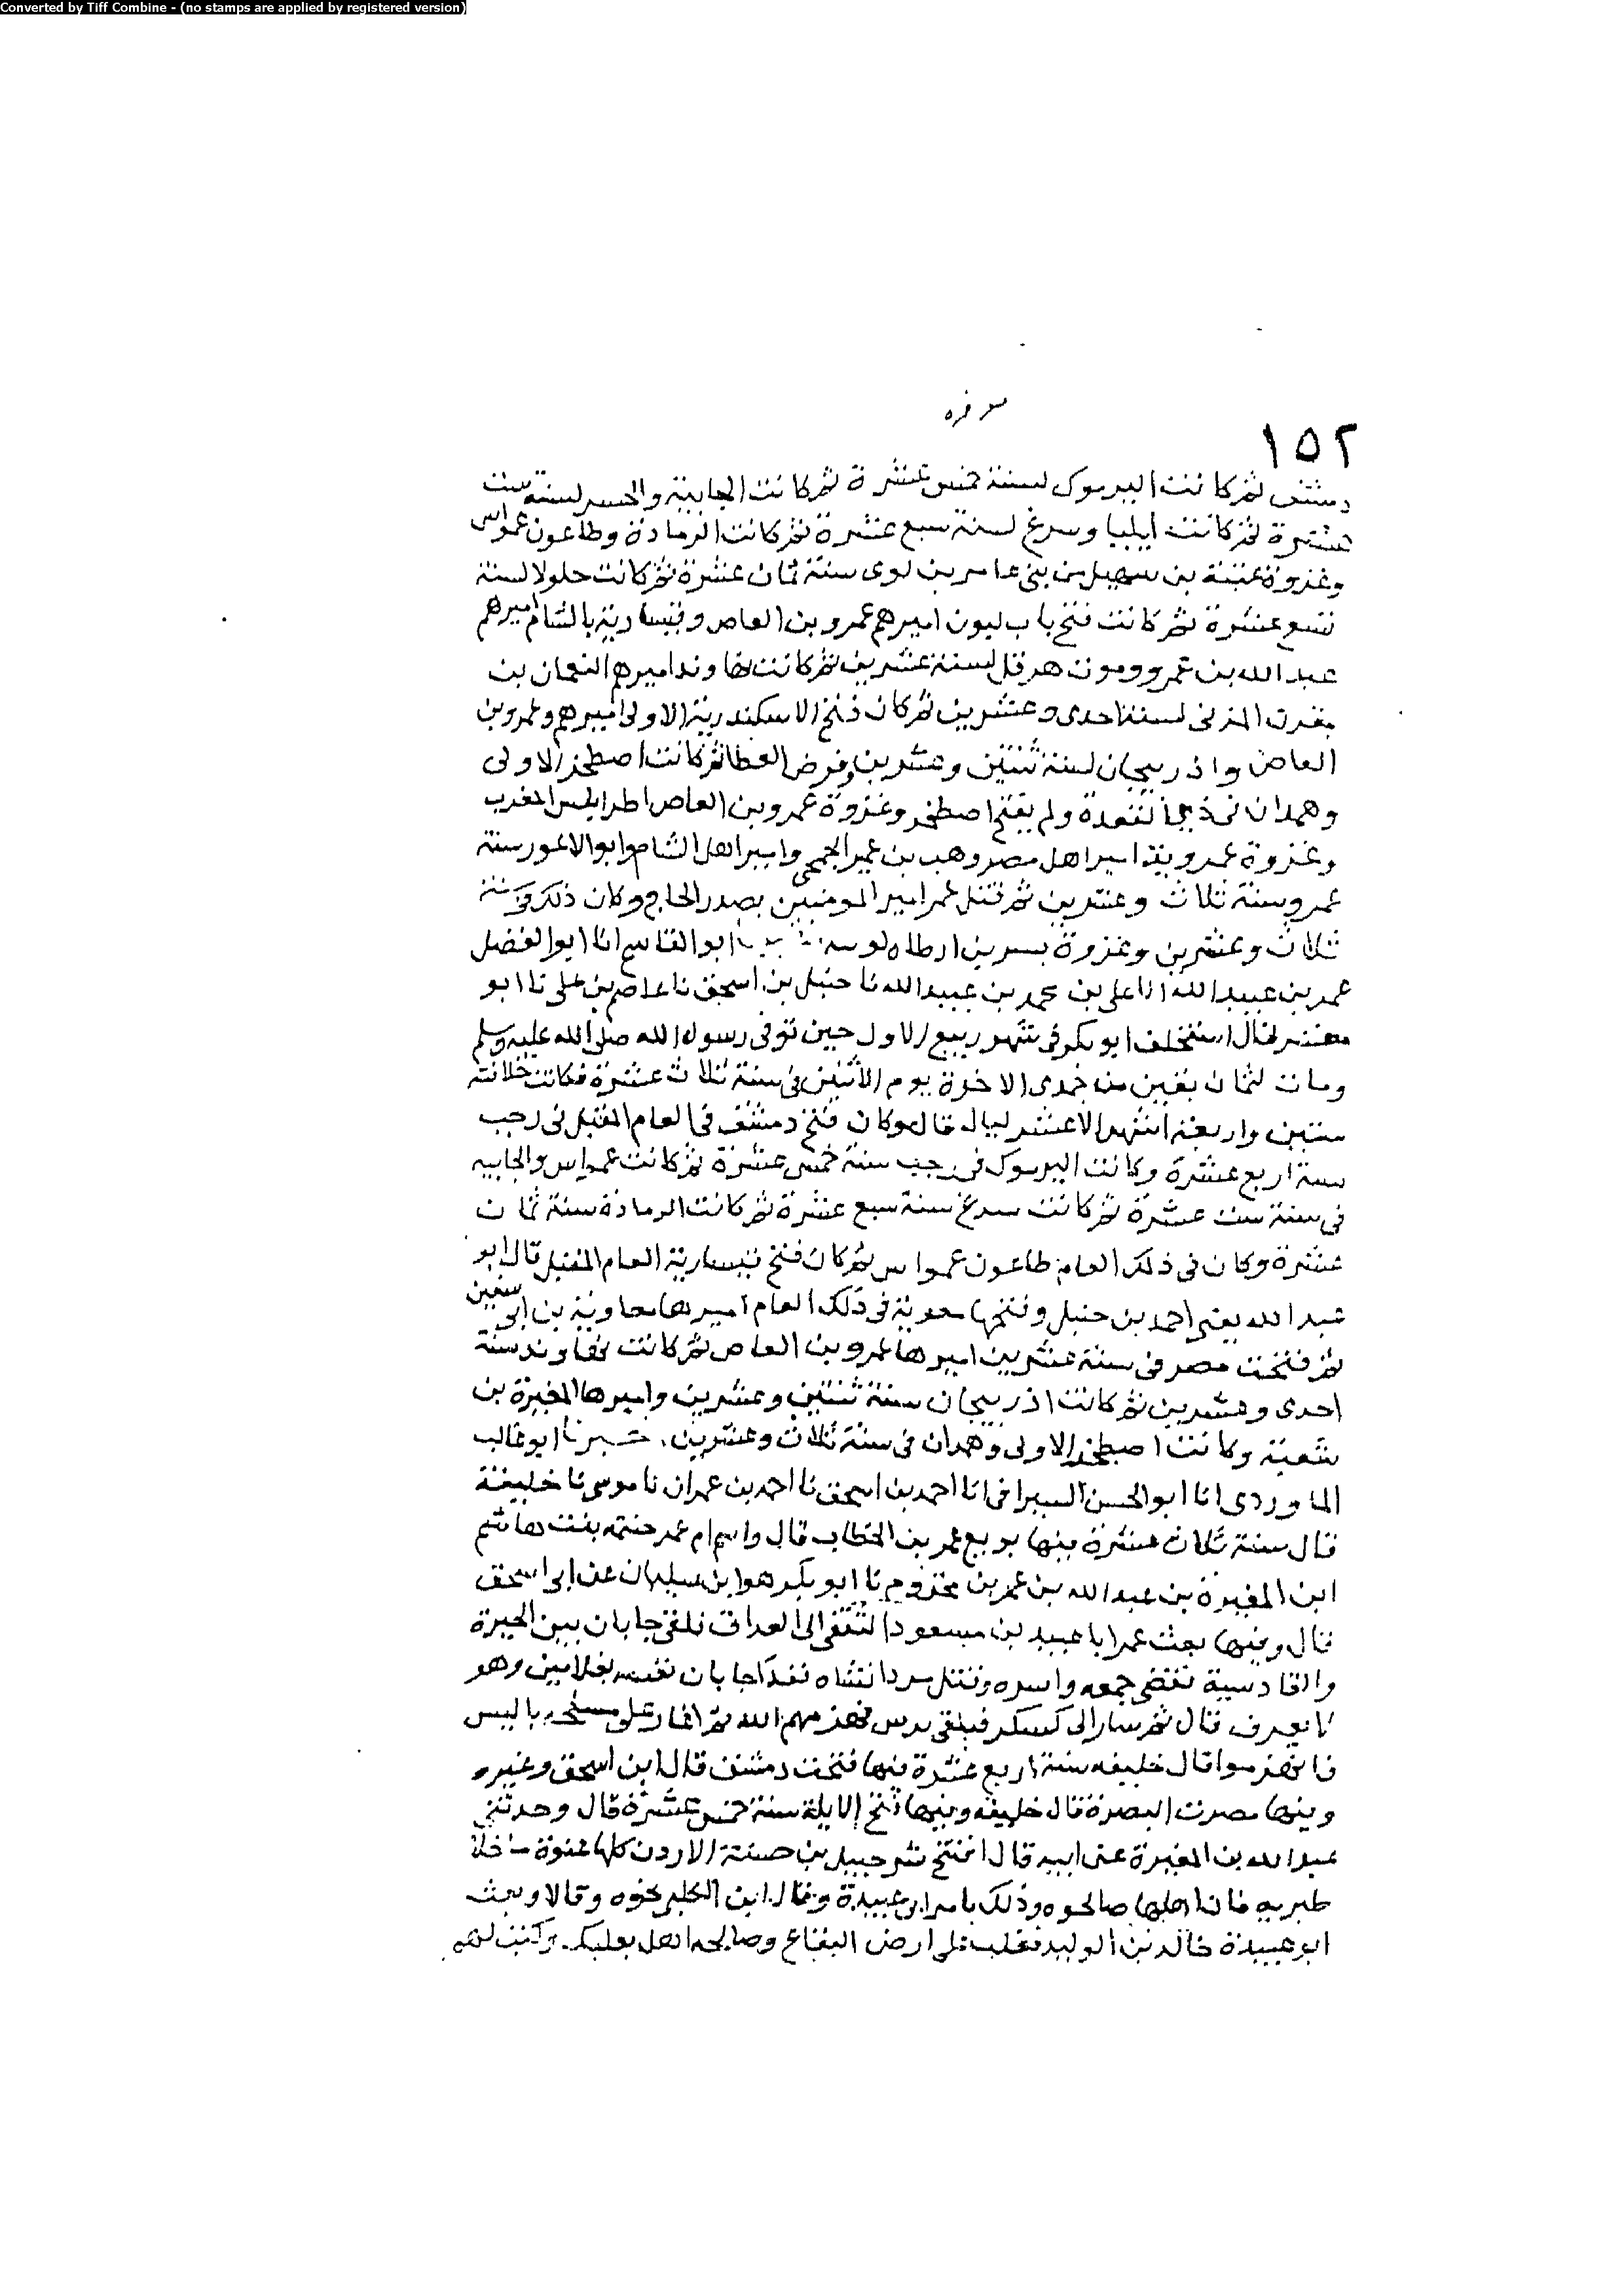 Converted by Tiff Combine - (no stamps are applied by registered version)
١٥٢
دمشق ثم كانت اليرموك لسنة خمس عشرة ثم كانت الجابية والجسر لسنة ست
عشرة ثم كانت ايليا وسرغ لسنة سبع عشرة ثم كانت الرمادة وطاعون عمواس
وغزوة عتبة بن سهيل من بني عامر بن لوى سنة ثمان عشرة ثم كانت جلولا لسنة
تسع عشرة ثم كانت فتح باب ليون اميرهم عمرو بن العاص وقيسارية بالشام اميرهم
عبد الله بن عمرو وموت هرقل لسنة عشرين ثم كانت نهاوند اميرهم النعمان بن
مقرن المزنى لسنة احدى وعشرين ثم كان فتح الاسكندرية الاولى اميرهم وعمرو بن
العاص واذربيجان لسنة ثنتين وعشرين وفرض العطا ثم كانت اصطخر الاولى
وهمدان في ذي القعدة ولم يفتح اصطخر وغزوة عمرو بن العاص اطرابلس المغرب
وغزوة عمورية امير اهل مصر وهب بن عمير الجمحى وامير اهل الشام ابو الاعور سنة
عمرو سنة ثلاث وعشرين ثم قتل عمر امير المومنين بصدر الحاج وكان ذلك في سنة
ثلاث وعشرين وغزوة بسر بن ارطاه ابو القاسم انا ابو الفضل
عمر بن عبيد الله انا على بن محمد بن عبيد الله نا حنبل بن اسحق نا عاصم بن على نا ابو
معشر قال استخلف ابو بكر في شهر ربيع الاول حين توفى رسول الله صلى الله عليه وسلم
ومات لثمان بقين من جمدى الاخرة يوم الاثنين في سنة ثلاث عشرة فكانت خلافته
سنتين واربعة اشهر الا عشر ليال قال وكان فتح دمشق في العام المقبل في رجب
سنة اربع عشرة وكانت اليرموك في رجب سنة خمس عشرة ثم كانت عمواس والجابيه
في سنة ست عشرة ثم كانت سرغ سنة سبع عشرة ثم كانت الرمادة سنة ثمان
عشرة وكان في ذلك العام طاعون عمواس ثم كان فتح قيسارية العام المقبل قال ابو
عبد الله يعنى احمد بن حنبل وفتحها معوية في ذلك العام اميرها معاوية بن ابى سفين
ثم فتحت مصر في سنة عشرين اميرها عمرو بن العاص ثم كانت نهاوند سنة
احدى وعشرين ثم كانت اذربيجان سنة ثنتين وعشرين واميرها المغيرة بن
شعبة وكانت اصطخر الاولى وهمدان في سنة ثلاث وعشرين اخبرنا ابو غالب
الماوردى انا ابو الحسن السيرافى انا احمد بن اسحق نا احمد بن عمران نا موسى نا خليفة
قال سنة ثلاث عشرة فيها بويع عمر بن الخطاب قال واسم ام عمر حنتمه بنت هاشم
ابن المغيرة بن عبد الله بن عمر بن مخزوم نا ابو بكر هو ابن سليمان عن ابى اسحق
قال وفيها بعث عمر ابا عبيد بن مسعود الثقفى الى العراق فلقى جابان بين الحيرة
والقادسية ففض جمعه واسره وقتل مردانشاه ففدا جابان نفسه بغلامين وهو
لا يعرف قال ثم سار الى كسكر فلقى نرس فهزمهم الله ثم اغار على باليس
فانهزموا قال خليفه سنة اربع عشرة فيها فتحت دمشق قال ابن اسحق وغيره
وفيها مصرت البصرة قال خليفة وفيها فتح الابلة سنة خمس عشرة قال وحدثنى
عبد الله بن المغيرة عن ابيه قال افتتح شرحبيل بن حسنة الاردن كلها عنوة خلا
طبريه فان اهلها صالحوه وذلك بامر ابى عبيدة وقال ابن الكلبى نحوه وقالا وبعث
ابو عبيدة خالد بن الوليد فغلب على ارض البقاع وصالحه اهل بعلبك وكتب لهم